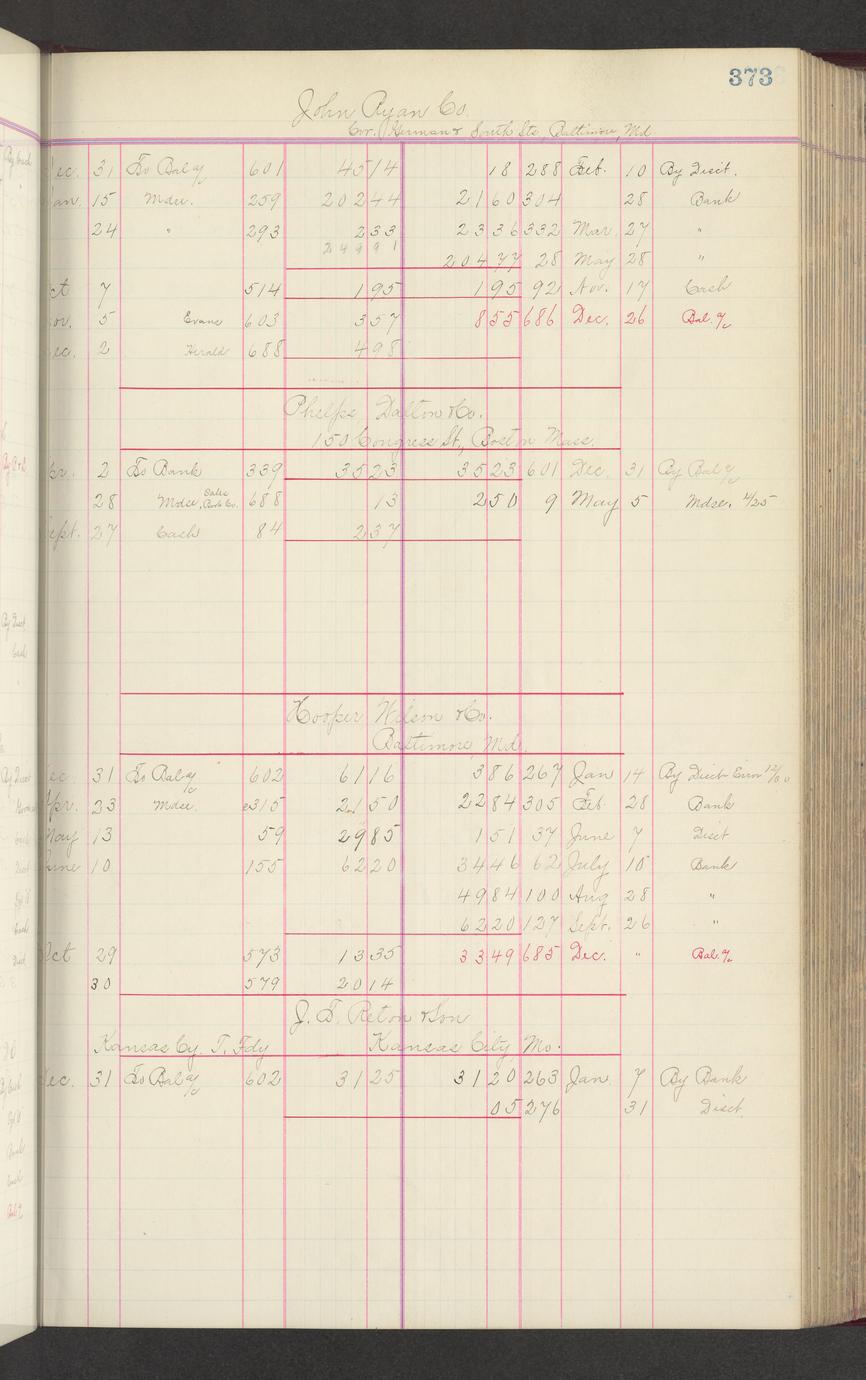 373
John Ryan Co.
Cor. German & South Sts, Baltimore, Md
Dec. 31 To Bal a/c 601 45 14 18 288 Feb. 10 By Disct.
Jan. 15 Mdse. 259 202 44 21 60 304 28 Bank
24 " 293 2 33 23 36 332 Mar. 27 "
249 91
204 77 28 May 28 "
Oct 7 514 1 95 1 95 92 Nov. 17 Cash
Nov. 5 Evans 603 3 57 8 55 686 Dec. 26 Bal. a/c
Dec. 2 Herald 688 4 98
Phelps Dalton & Co.
150 Congress St, Boston Mass.
Apr. 2 To Bank 339 35 23 35 23 601 Dec. 31 By Bal a/c
28 Mdse, 688 13 2 50 9 May 5 Mdse. 4/25
Sept. 27 Cash 84 2 37
Hooper Wilson & Co.
Baltimore, Md.
Dec. 31 To Bal a/c 602 61 16 3 86 267 Jan 14 By Disct
Apr. 23 Mdse. 315 21 50 22 84 305 Feb. 28 Bank
May 13 59 29 85 1 51 37 June 7 Disct
June 10 155 62 20 34 46 62 July 10 Bank
49 84 100 Aug 28 "
62 20 127 Sept. 26 "
Oct 29 573 13 35 33 49 685 Dec. " Bal. a/c
30 579 20 14
J. T. Reton & Son
Kansas Cy. T. Fdy Kansas City, Mo.
Dec. 31 To Bal a/c 602 31 25 31 20 263 Jan. 7 By Bank
05 276 31 Disct.